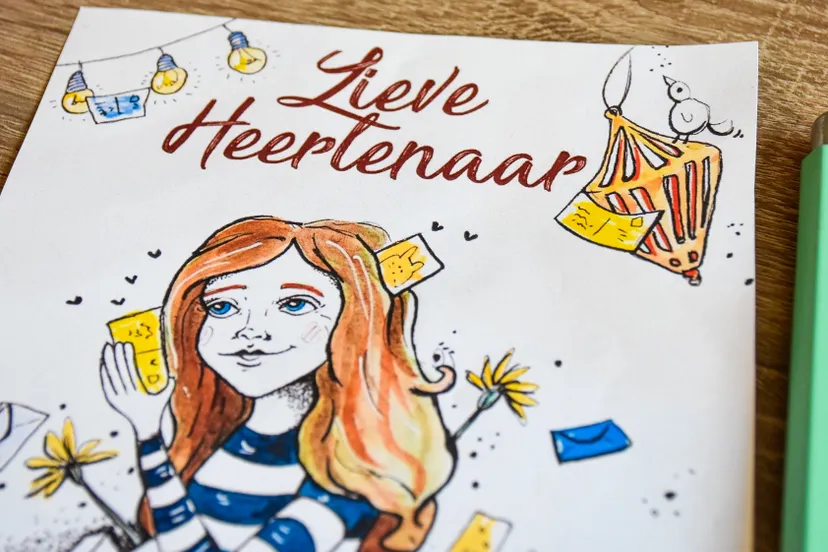 Lieve
Heertenaar